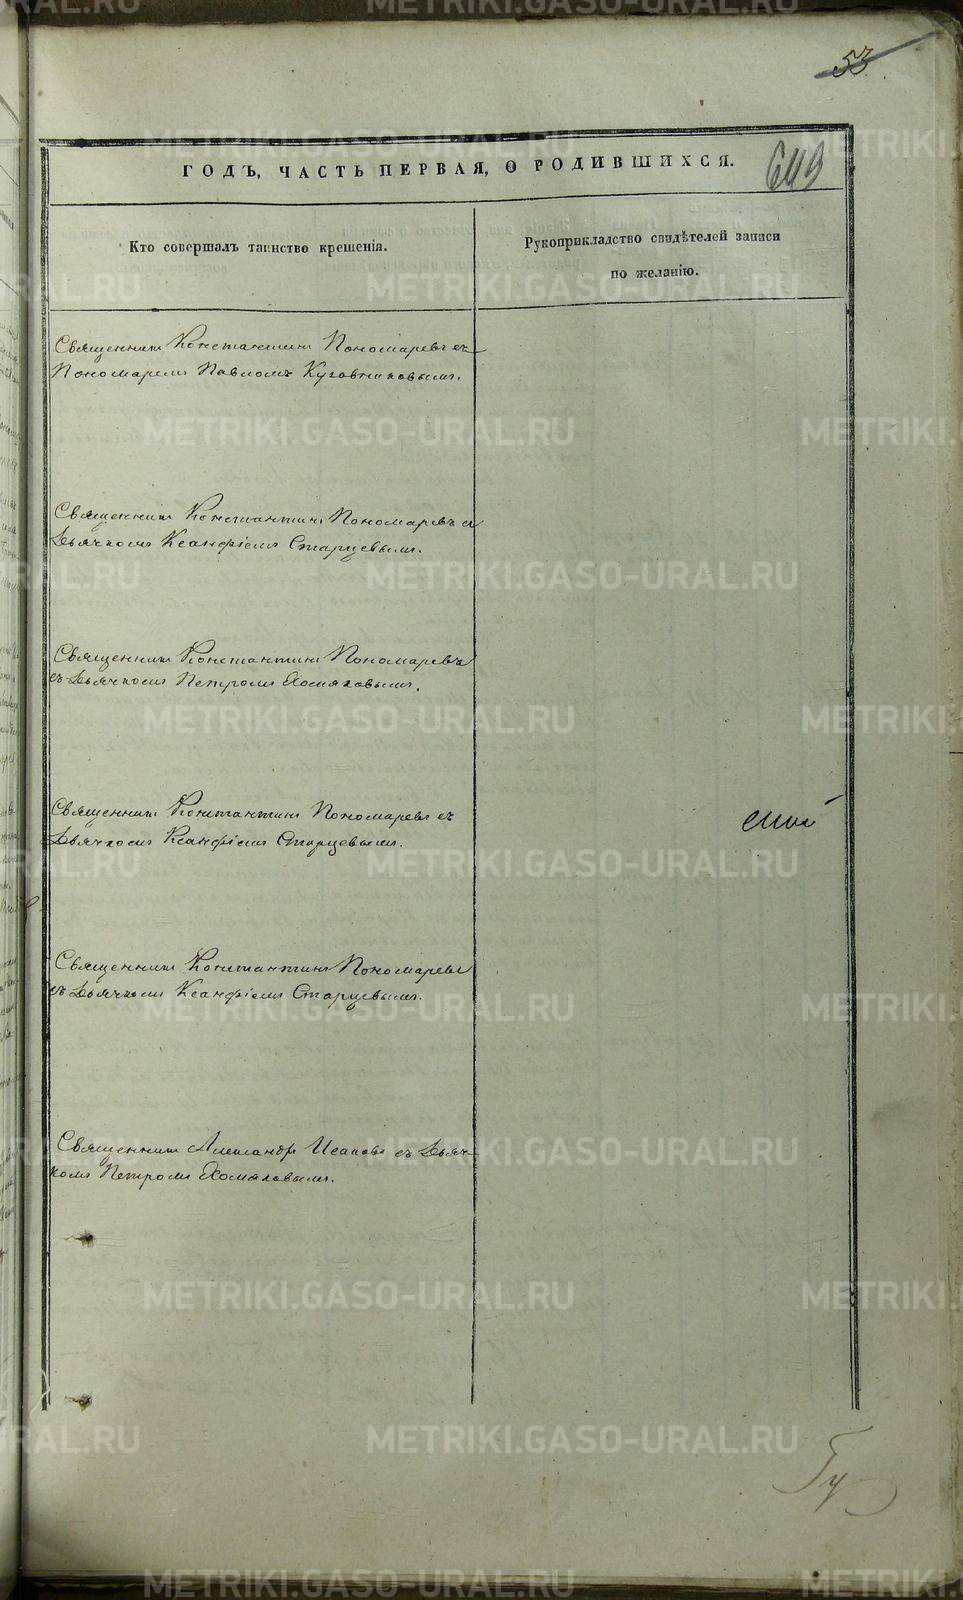 53
ГОДЪ, ЧАСТЬ ПЕРВАЯ, О РОДИВШИХСЯ.
649
Кто совершалъ таинство крещенія.
Рукоприкладство свидѣтелей записи
по желанію.
Священникъ Константинъ Пономаревъ съ
Пономаремъ Павломъ
Священникъ Константинъ Пономаревъ съ
Дьячкомъ Ксанфіемъ Старцевымъ.
Священникъ Константинъ Пономаревъ
съ Дьячкомъ Петромъ Хомяковымъ.
Священникъ Константинъ Пономаревъ съ
Дьячкомъ Ксанфіемъ Старцевымъ.
Священникъ Константинъ Пономаревъ
съ Дьячкомъ Ксанфіемъ Старцевымъ.
Священникъ Александръ съ Дьяч-
комъ Петромъ Хомяковымъ.
METRIKI.GASO-URAL.RU